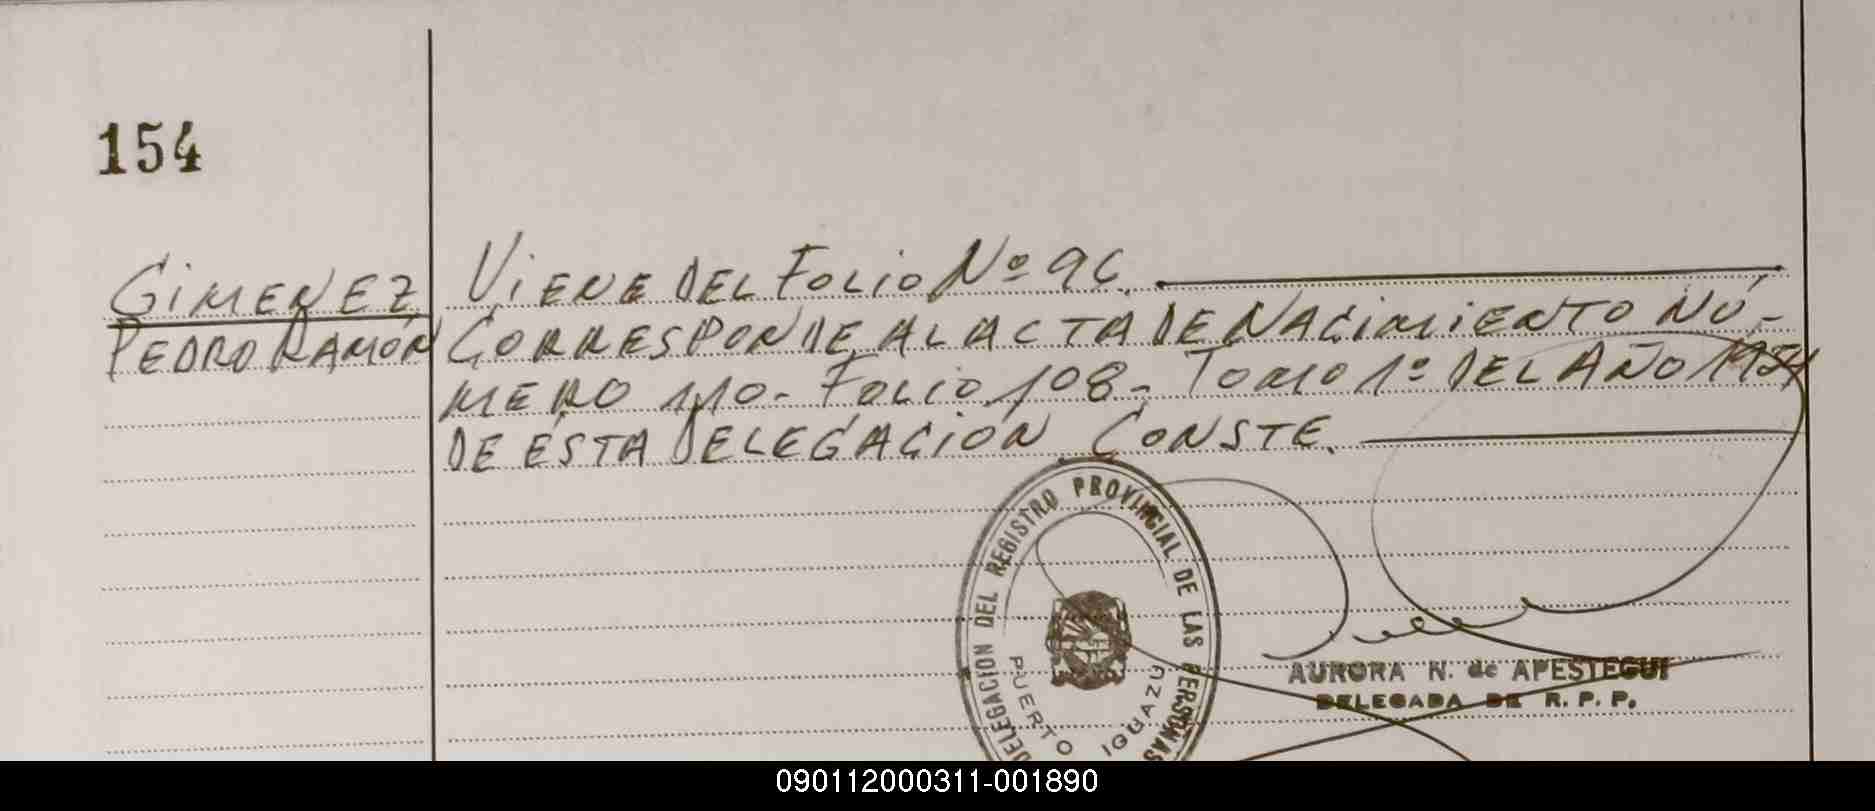 154
GIMENEZ
PEDRO RAMÓN
VIENE DEL FOLIO Nº 96.
CORRESPONDE AL ACTA DE NACIMIENTO NÚ-
MERO 110- FOLIO 108- TOMO 1º DEL AÑO
DE ÉSTA DELEGACIÓN CONSTE.
DELEGACION DEL REGISTRO PROVINCIAL DE LAS PERSONAS
PUERTO IGUAZU
AURORA N. de APESTEGUI
DELEGADA DE R. P. P.
090112000311-001890